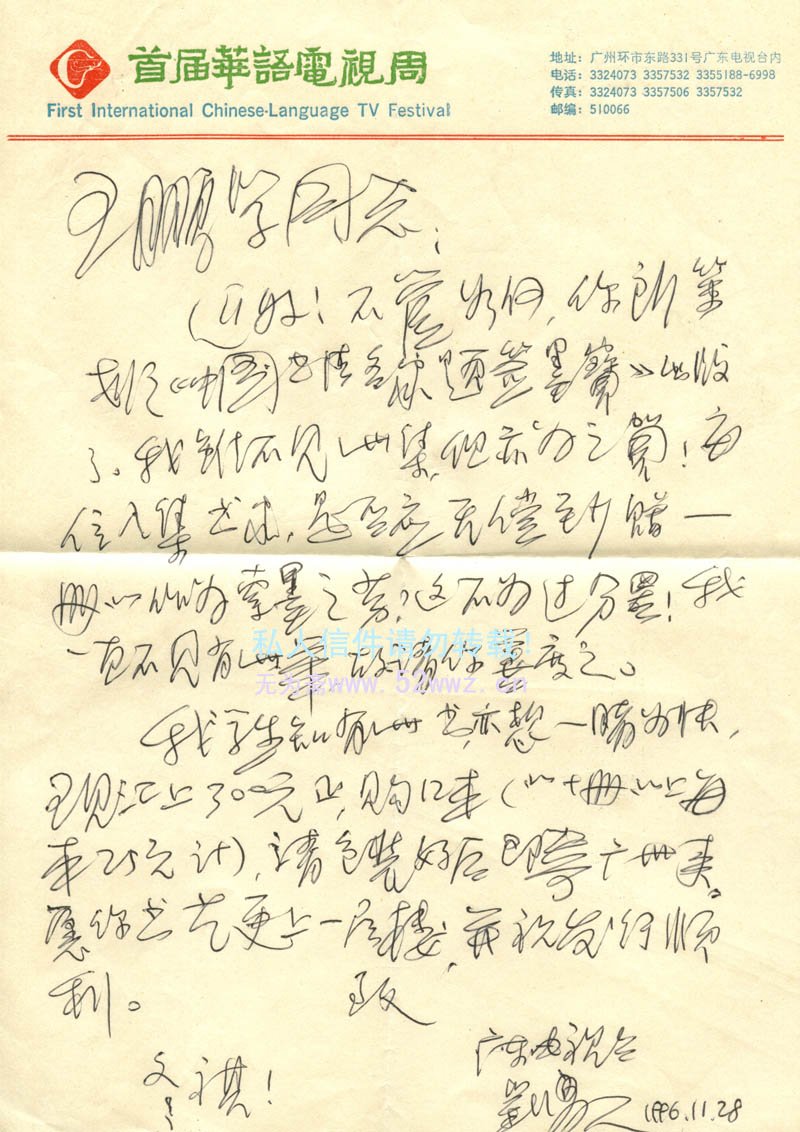 首届華語電視周
First International Chinese-Language TV Festival
地址：广州环市东路331号广东电视台内
电话：3324073 3357532 3355188-6998
传真：3324073 3357506 3357532
邮编：510066
王鹏学同志：
近好！不管如何，你所策
划之《中国书法名家题签墨宝》出版
了。我虽然不见此集，但亦为之贺！每
位入集书家，是否应无偿至少赠一
册以作为索墨之劳？这不为过分罢！我
一直不见有此举，故请你要度之。
私人信件请勿转载！
无为斋www.52wwz.cn
我学生知有此书，亦想一睹为快，
现汇上300元正，购12本（以十册以上每
本25元计），请包装好后即寄广州来。
愿你书艺更上一层楼，并祝发行顺
利。 致
文祺！
广东电视台
1996.11.28